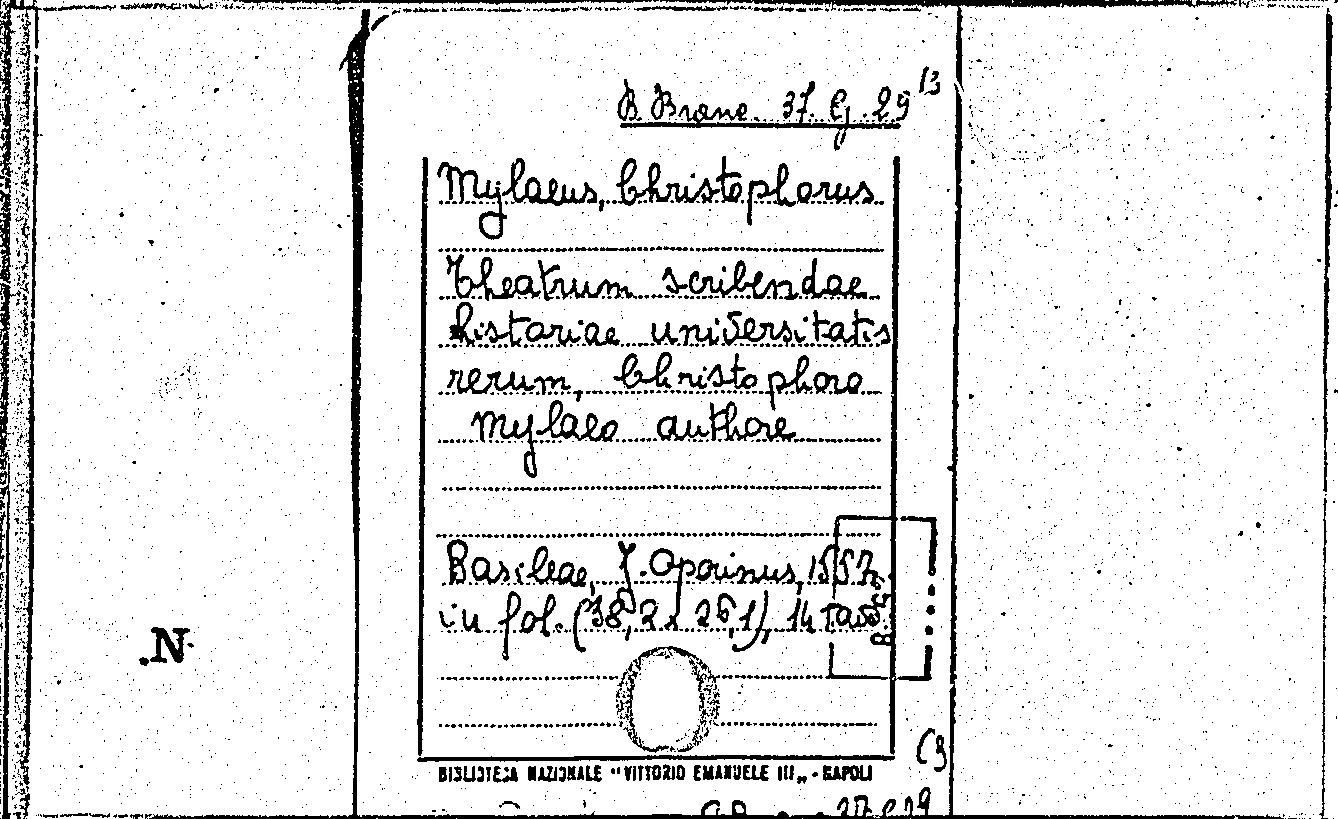 B. Branc. 37. G. 29 13
Mylaeus, Christophorus
Theatrum scribendae
historiae universitatis
rerum, Christophoro
Mylaeo authore
Basileae, J. Oporinus, 1557
in fol. (38,2 x 26,1), 14 tavv.
.N.
(3
BIBLIOTECA NAZIONALE "VITTORIO EMANUELE III„ - NAPOLI